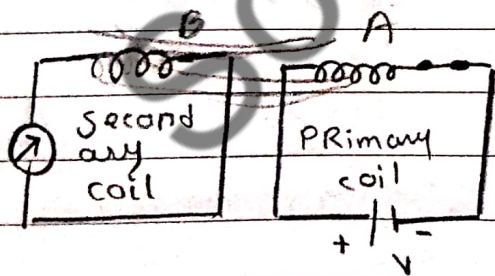 B A
Second
ary
coil
PRimary
coil
+ -
V